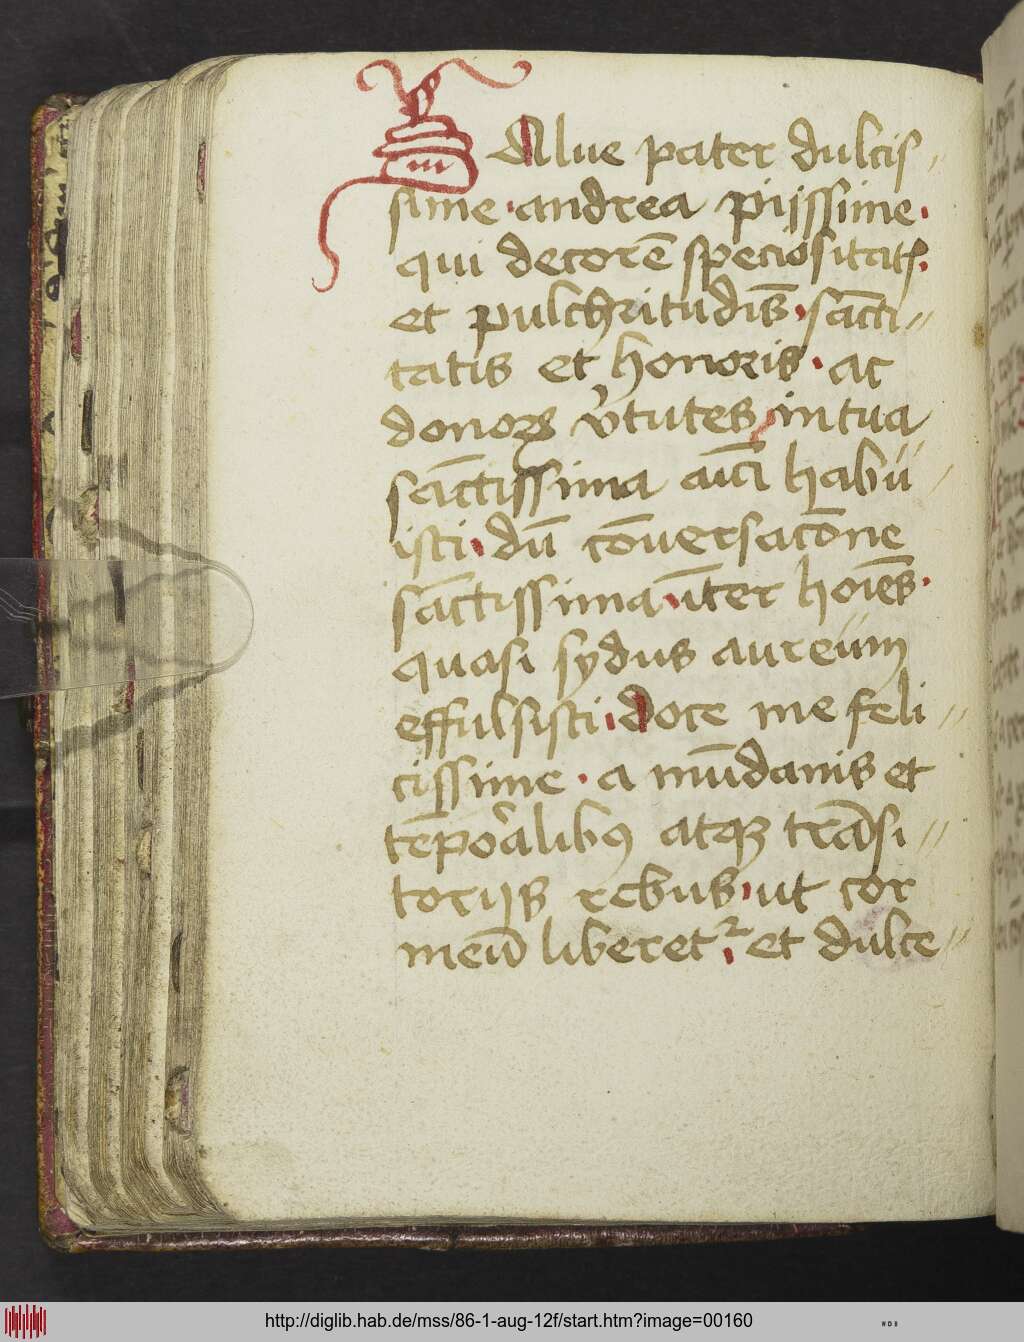 SAlue pater dulcis〃
sime · andrea piissime ·
qui decorē speciositatꝭ ·
et pulchritudīs · sācti〃
tatis et honoris · ac
donoꝝ v̓tutes in tua
sāctissima aīa habu〃
isti · dū cōuersacōne
sāctissima · īter hoīes ·
quasi sydus aureum
effulsisti · doce me feli〃
cissime · a mūdanis et
tēporalibꝰ atqꝫ trāsi〃
torijs rebus · ut cor
meū liberetᷣ · et dulce〃
http://diglib.hab.de/mss/86-1-aug-12f/start.htm?image=00160